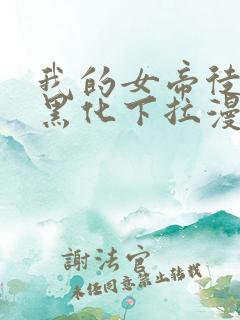 我的女帝徒
黑化下拉漫
謝法官
未经同意禁止转载